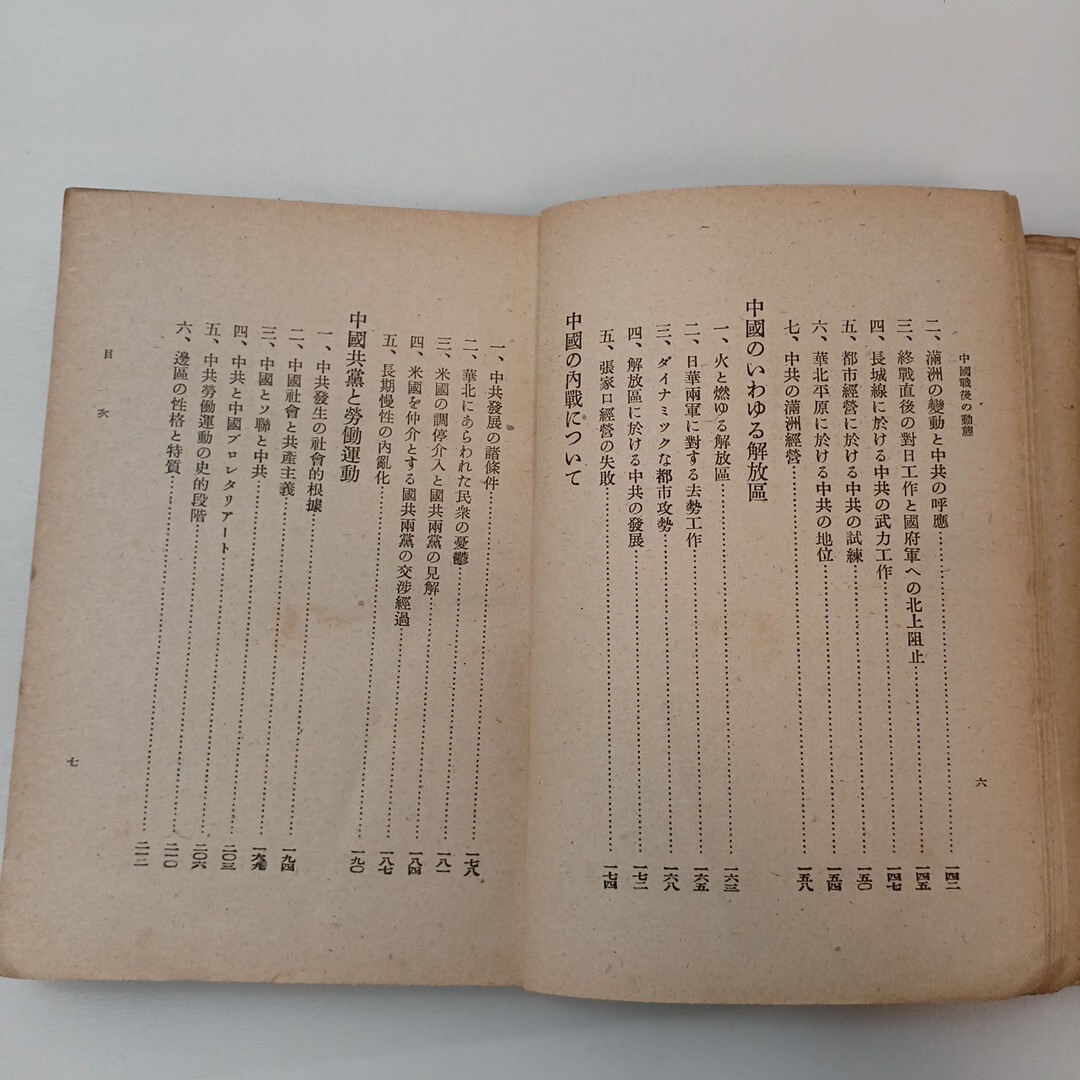 中國戰後の動態
二、滿洲の變動と中共の呼應……一四二
三、終戰直後の對日工作と國府軍への北上阻止……一四五
四、長城線に於ける中共の武力工作……一四七
五、都市經營に於ける中共の試練……一五〇
六、華北平原に於ける中共の地位……一五四
七、中共の滿洲經營……一五八
中國のいわゆる解放區
一、火と燃ゆる解放區……一六三
二、日華兩軍に對する去勢工作……一六五
三、ダイナミツクな都市攻勢……一六八
四、解放區に於ける中共の發展……一七二
五、張家口經營の失敗……一七四
中國の內戰について
六
一、中共發展の諸條件……一七八
二、華北にあらわれた民衆の憂鬱……一八一
三、米國の調停介入と國共兩黨の見解……一八四
四、米國を仲介とする國共兩黨の交涉經過……一八七
五、長期慢性の內亂化……一九〇
中國共黨と勞働運動
一、中共發生の社會的根據……一九四
二、中國社會と共產主義……一九九
三、中國とソ聯と中共……二〇三
四、中共と中國プロレタリアート……二〇六
五、中共勞働運動の史的段階……二一〇
六、邊區の性格と特質……二一二
目次
七